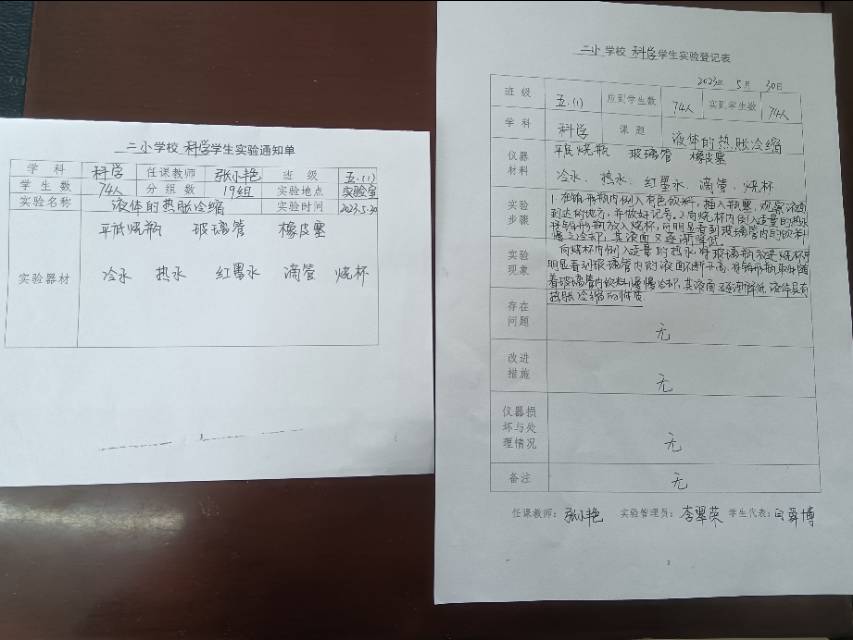 二小学校 科学学生实验通知单
学 科 科学 任课教师 张小艳 班 级 五.(1)
学 生 数 74人 分 组 数 19组 实验地点 实验室
实验名称 液体的热胀冷缩 实验时间 2023.5.30
实验器材
平底烧瓶 玻璃管 橡皮塞
冷水 热水 红墨水 滴管 烧杯
二小学校 科学学生实验登记表
2023年 5月 30日
班 级 五.(1) 应到学生数 74人 实到学生数 74人
学 科 科学 课 题 液体的热胀冷缩
仪器材料
平底烧瓶 玻璃管 橡皮塞
冷水、热水、红墨水、滴管、烧杯
实验步骤
1.在锥形瓶内倒入有色饮料,插入瓶塞,观察液面
到达的地方,并做好记号。2.向烧杯内倒入适量的热水
将锥形瓶放入烧杯,可明显看到玻璃管内的饮料
慢慢冷却,其液面又逐渐降低。
实验现象
向烧杯内倒入适量的热水将玻璃瓶放进烧杯可
明显看到玻璃管内的液面不断升高,将锥形瓶取出随
着玻璃管内饮料慢慢冷却,其液面又逐渐降低,液体具有
热胀冷缩的性质
存在问题 无
改进措施 无
仪器损坏与处理情况 无
备注 无
任课教师: 张小艳 实验管理员: 李翠荣 学生代表: 闫舜博